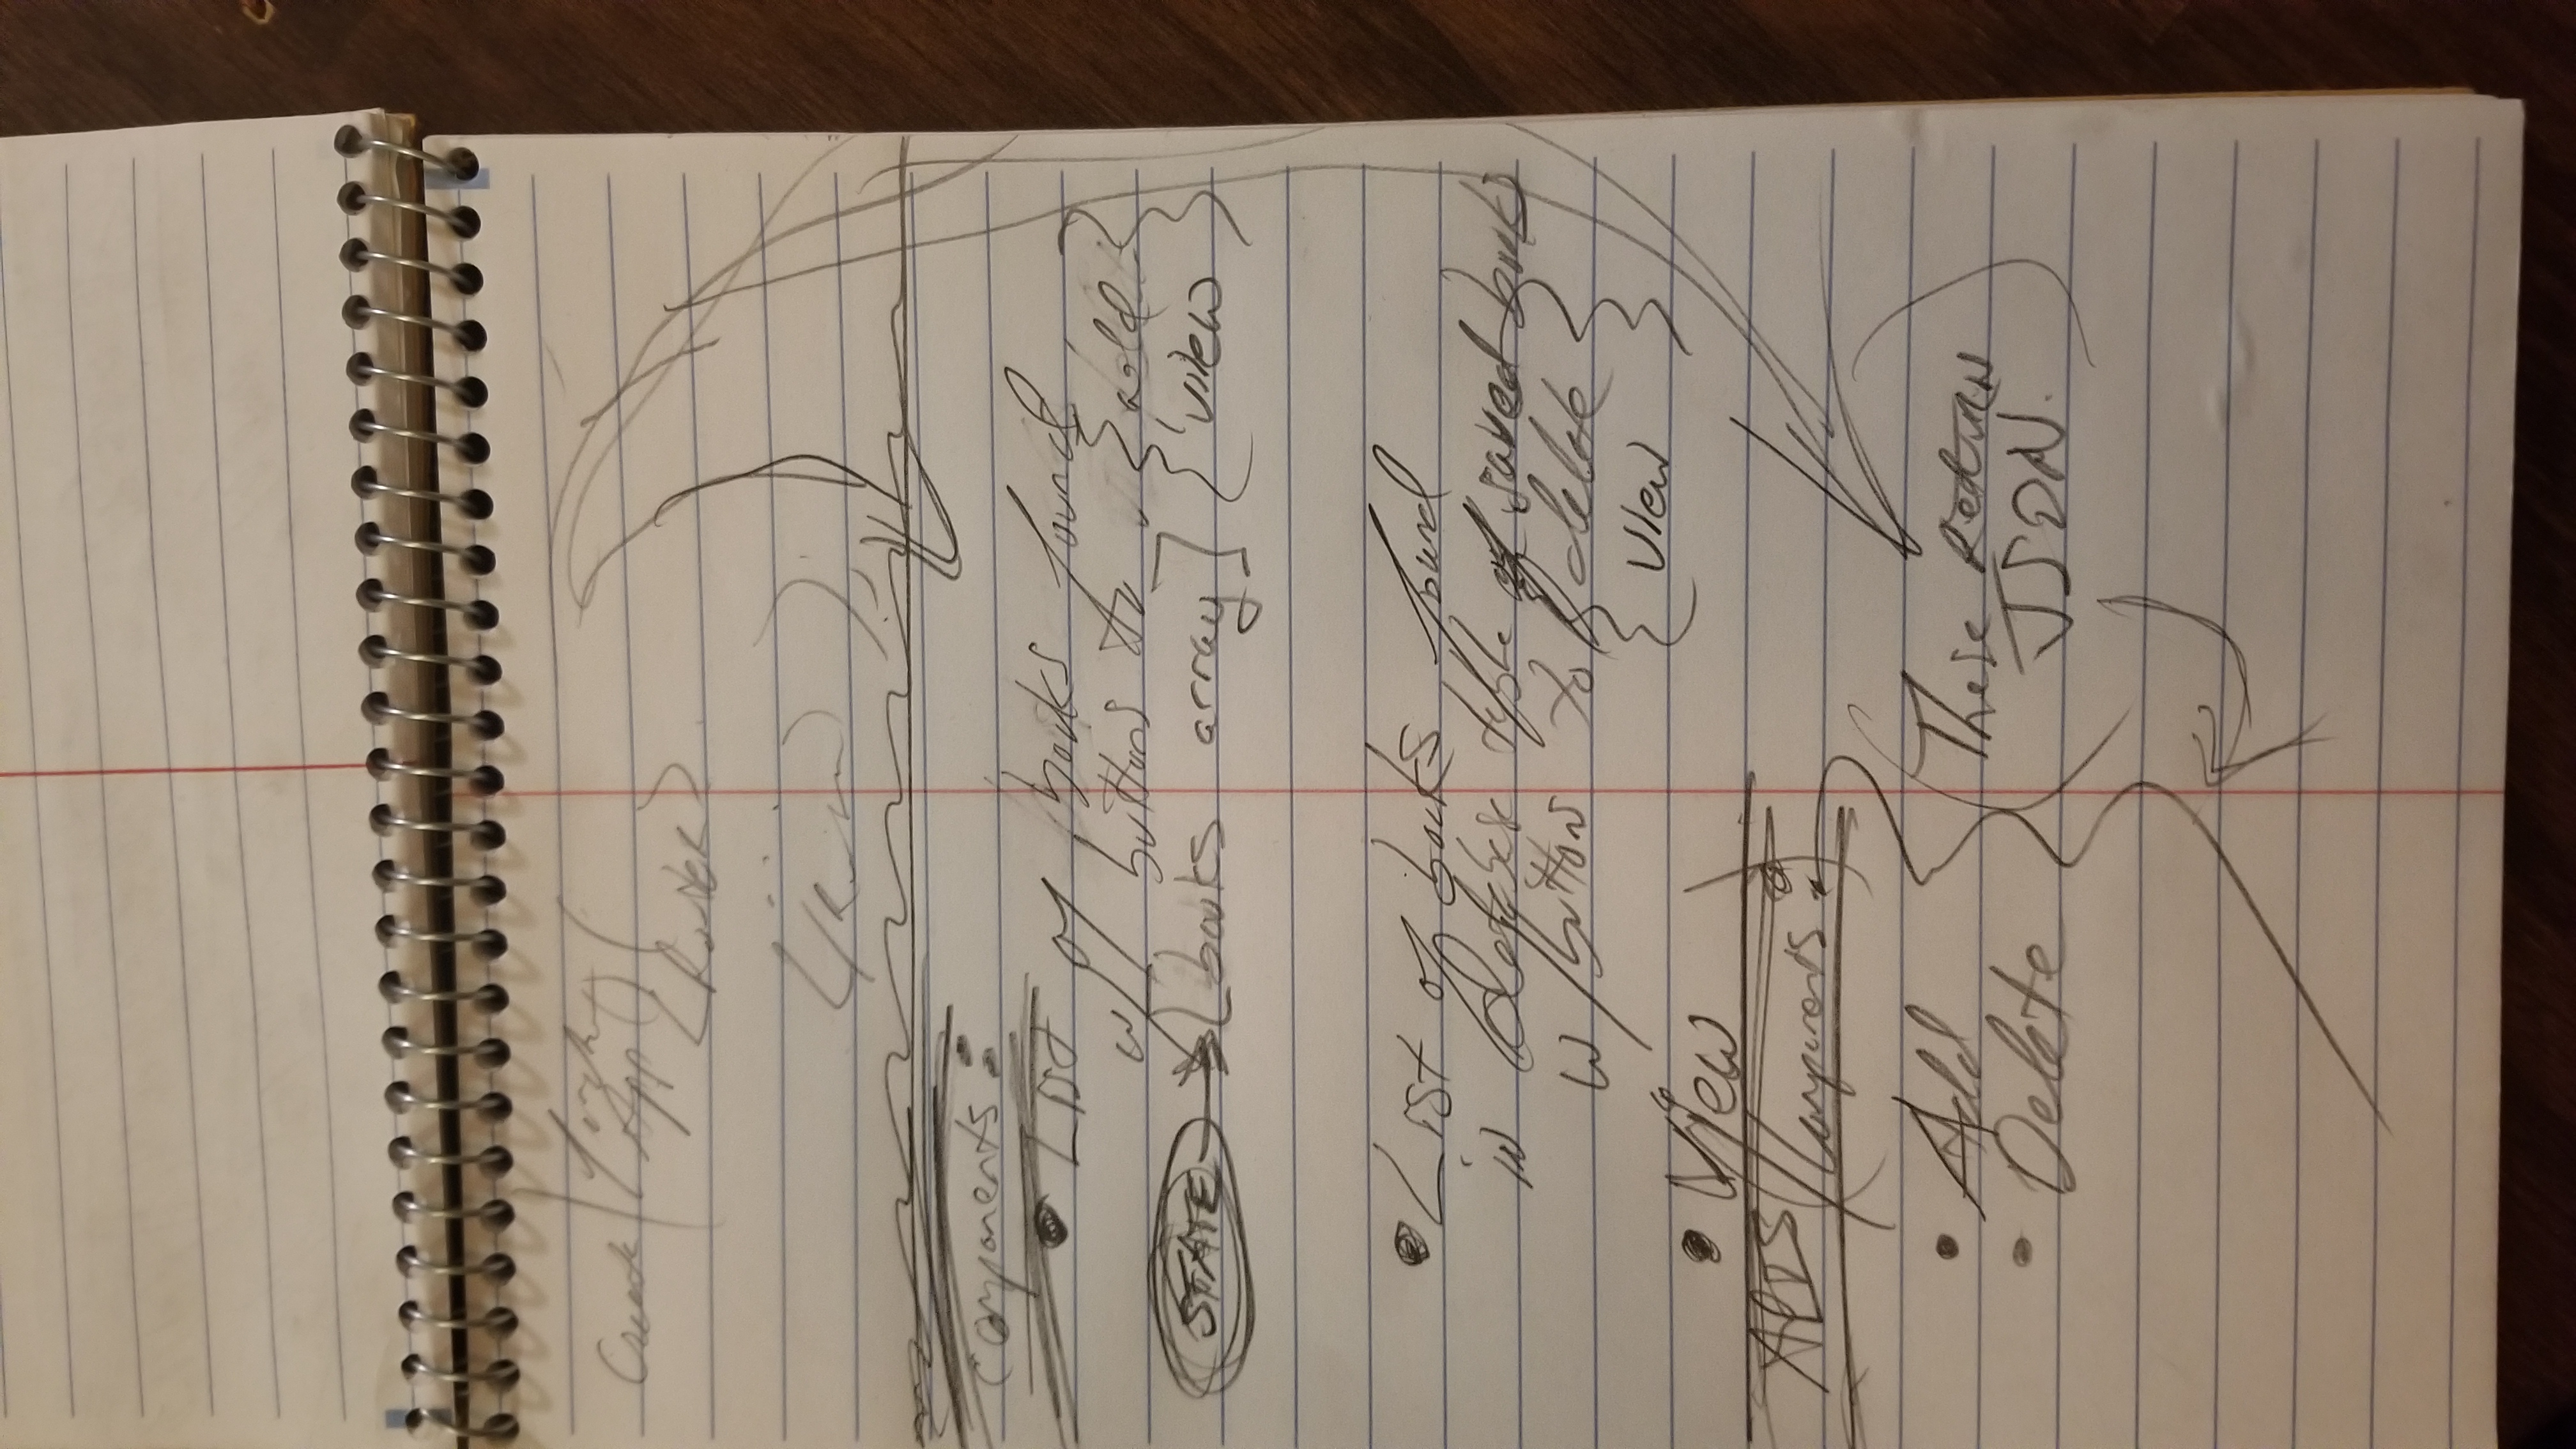 Create
App() (
<Router>
components:
• List of books found
w/ buttons to { add }
STATE → [books array] { view }
• List of books found
in database table of saved books
w/ button to { delete }
{ view }
• View
APIS (Components:)
• Add
• Delete
(These Return
JSON.)